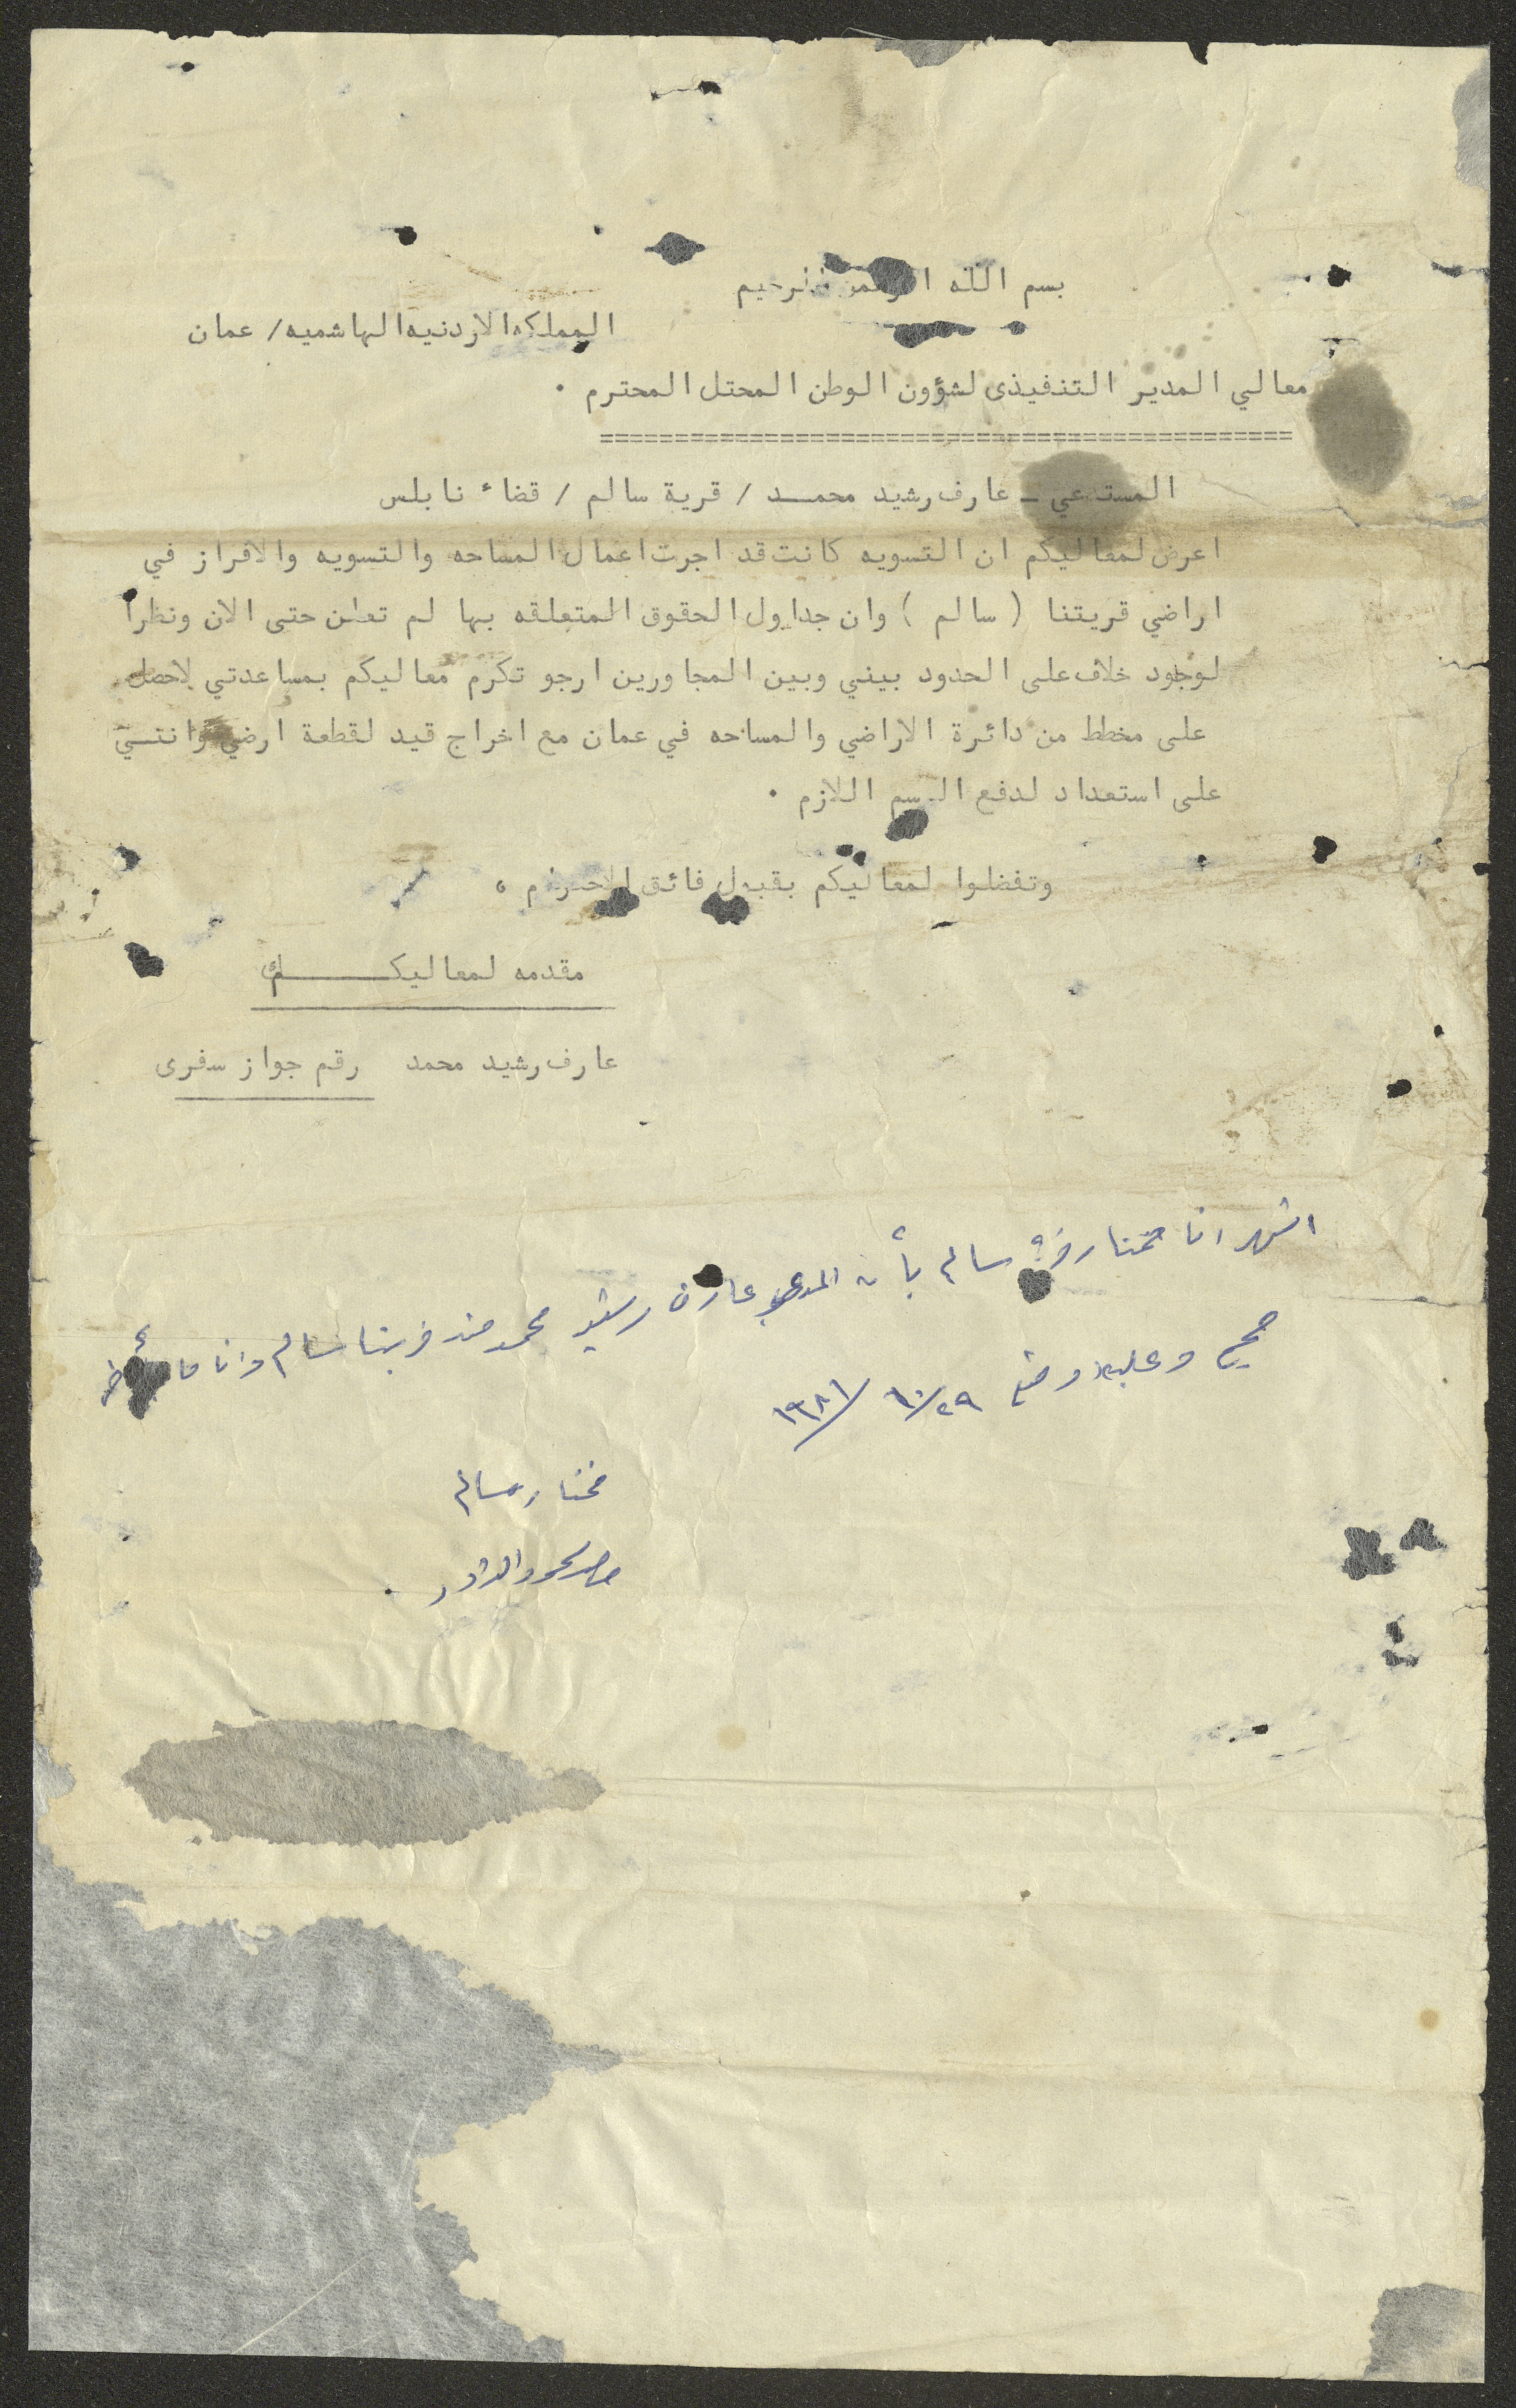 بسم الله الرحمن الرحيم
المملكه الاردنيه الهاشميه/ عمان
معالي المدير التنفيذى لشؤون الوطن المحتل المحترم .
==============================================
المستدعي ــ عارف رشيد محمـــد / قرية سالم / قضاء نابلس
اعرض لمعاليكم ان التسويه كانت قد اجرت اعمال المساحه والتسويه والافراز في
اراضي قريتنا ( سالم ) وان جداول الحقوق المتعلقه بها لم تعلن حتى الان ونظرا
لوجود خلاف على الحدود بيني وبين المجاورين ارجو تكرم معاليكم بمساعدتي لاحصل
على مخطط من دائرة الاراضي والمساحه في عمان مع اخراج قيد لقطعة ارضي وانـنـي
على استعداد لدفع الرسم اللازم .
وتفضلوا لمعاليكم بقبول فائق الاحترام .
مقدمه لمعاليكـــــــم
عارف رشيد محمد رقم جواز سفرى
اشهد انا مختار قرية سالم بأن المدعو عارف رشيد محمد من قريتنا سالم وان ما
صحيح وعليه اوقع ٢٩/١٠/١٩٨١
مختار سالم